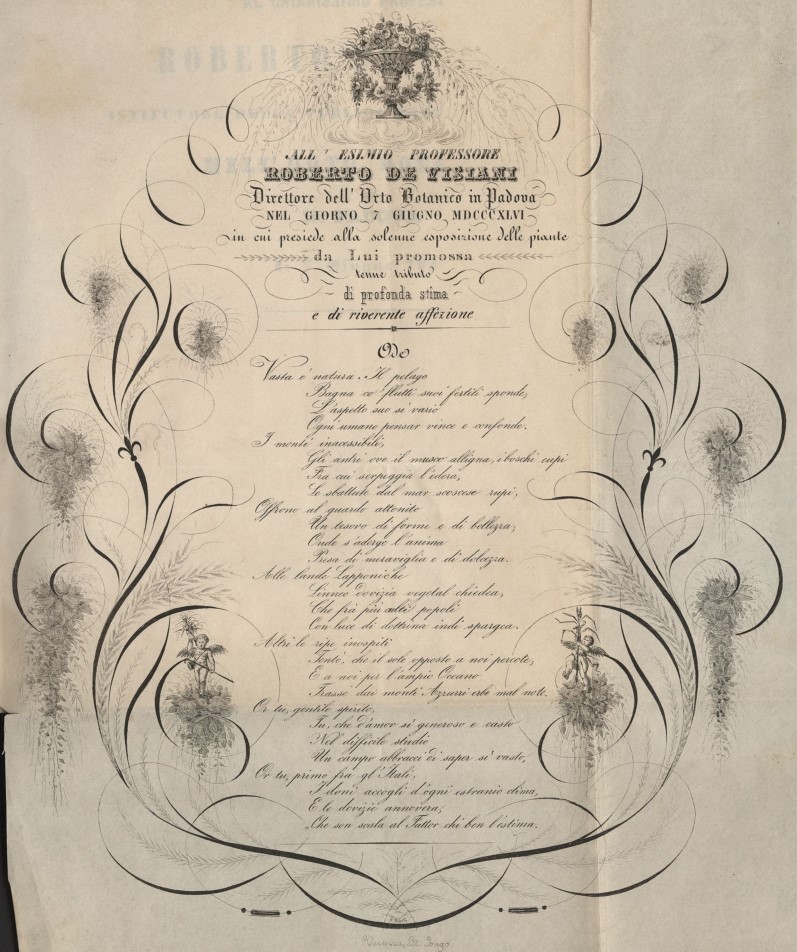 ALL' ESIMIO PROFESSORE
ROBERTO DE VISIANI
Direttore dell' Orto Botanico in Padova
NEL GIORNO 7 GIUGNO MDCCCXLVI
in cui presiede alla solenne esposizione delle piante
da Lui promossa
tenue tributo
di profonda stima
e di riverente affezione
Ode
Vasta è natura. Il pelago
Bagna co' flutti suoi fertili sponde,
L'aspetto suo sì vario
Ogni umano pensar vince e confonde.
I monti inacessibili,
Gli antri ove il musco alligna, i boschi cupi
Fra cui serpeggia l'edera,
Le sbattute dal mar scoscese rupi,
Offrono al guardo attonito
Un tesoro di forme e di bellezza,
Onde s'aderge l'anima
Presa di meraviglia e di dolcezza.
Alle lande Lapponiche
Linneo dovizia vegetal chiedea,
Che frà più culti popoli
Con luce di dottrina indi spargea.
Altri le ripe inospiti
Tentò, che il sole opposto a noi percote,
E a noi per l'ampio Oceano
Trasse dai monti Azzurri erbe mal note.
Or tu, gentile spirito,
Tu, che d'amor sì generoso e casto
Nel difficile studio
Un campo abbracci di saper sì vasto,
Or tu, primo frà gl'Itali,
I doni accogli d'ogni estranio clima,
E le dovizie annovera,
Che son scala al Fattor chi ben l'estima.
ROBERTO